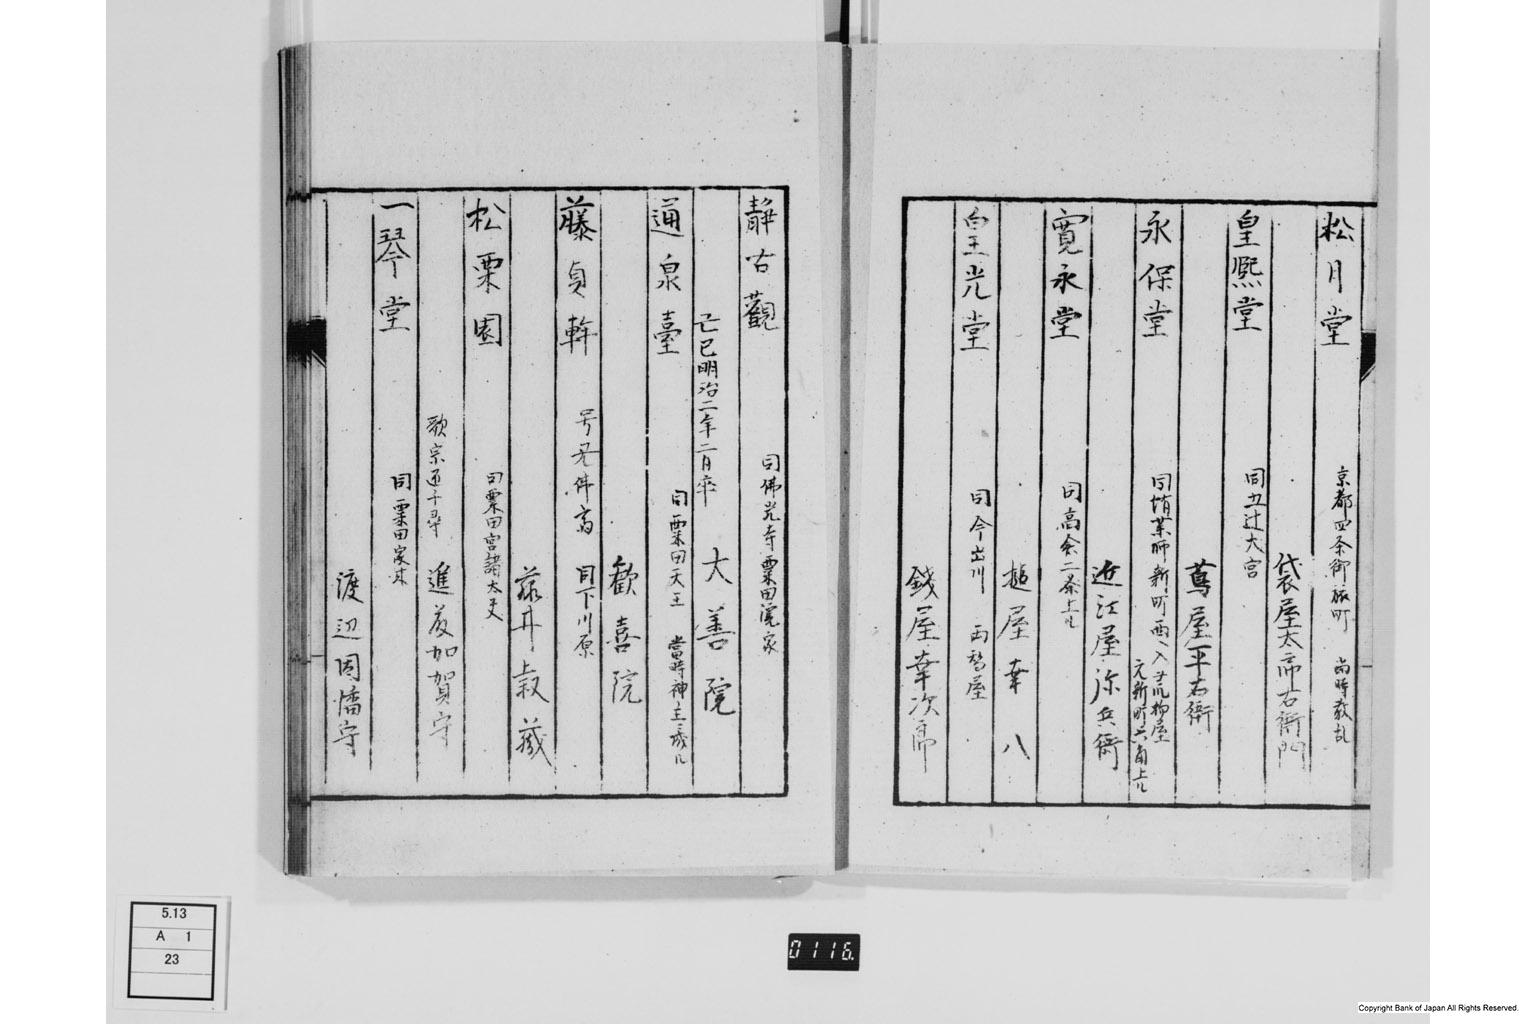 松月堂 京都四条御旅町 当時散乱
袋屋太郎右衛門
皇熈堂 同五辻大宮
蔦屋平右衛
永保堂 同蛸薬師新町西入 井筒柳屋
元新町六角上ル
近江屋弥兵衛
寛永堂 同高倉二条上ル
槌屋幸八
皇光堂 同今出川 両替屋
銭屋幸次郎
静古觀 同佛光寺粟田院家
己巳明治二年二月卒 大善院
通泉臺 同粟田天王 當時神主ニ成ル
歓喜院
藤貞幹 号无佛斎 同下川原
藤井叔蔵
松栗園 同粟田宮諸太夫
歌宗匠千尋 進藤加賀守
一琴堂 同粟田家来
渡辺因幡守
5.13
A 1
23
0116
Copyright Bank of Japan All Rights Reserved.